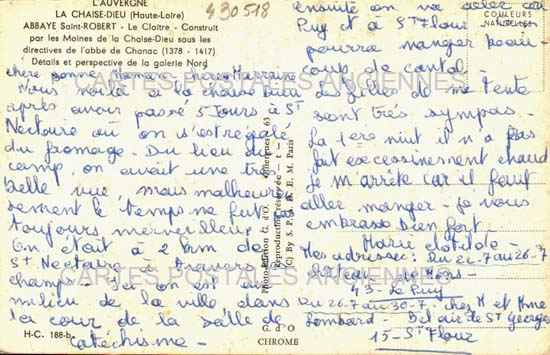 L'AUVERGNE
LA CHAISE-DIEU (Haute-Loire)
ABBAYE Saint-ROBERT - Le Cloître - Construit
par les Moines de la Chaise-Dieu sous les
directives de l'abbé de Chanac (1378 - 1417)
Détails et perspective de la galerie Nord
430518
chère bonne Maman, chère Marraine
Nous voilà à la chaise dieu
après avoir passé 5 jours à St
Nectaire où on s'est régalé
du fromage. Du lieu du
camp, on avait une très
belle vue, mais malheureu
sement le temps ne fut pas
toujours merveilleux.
On était à 2 km de
St Nectaire à travers
champs. Ici on est au
milieu de la ville dans
la cour de la salle de
catéchisme -
H-C. 188-b
Photo-Edition G. d'O.
Reproduction réservée
(C) By S. P. A. D. E. M. Paris
G. d'O
CHROME
COULEURS
NATURELLES
ensuite on va aller au
Puy et à St Flour
pourra manger beau-
coup de cantal.
les filles de ma tente
sont très sympas.
La 1ère nuit il n'a pas
fait excessivement chaud
je m'arrête car il faut
aller manger - je vous
embrasse bien fort.
Marie Clotilde -
Mes adresses: du 22-7 au 26-7
château de Mons -
43 - Le Puy
du 26-7 au 30-7 chez M et Mme
Lombard - Bel air de St Georges
15 - St Flour
CARTES POSTALES ANCIENNES
CARTES POSTALES ANCIENNES
CARTES POSTALES ANCIENNES